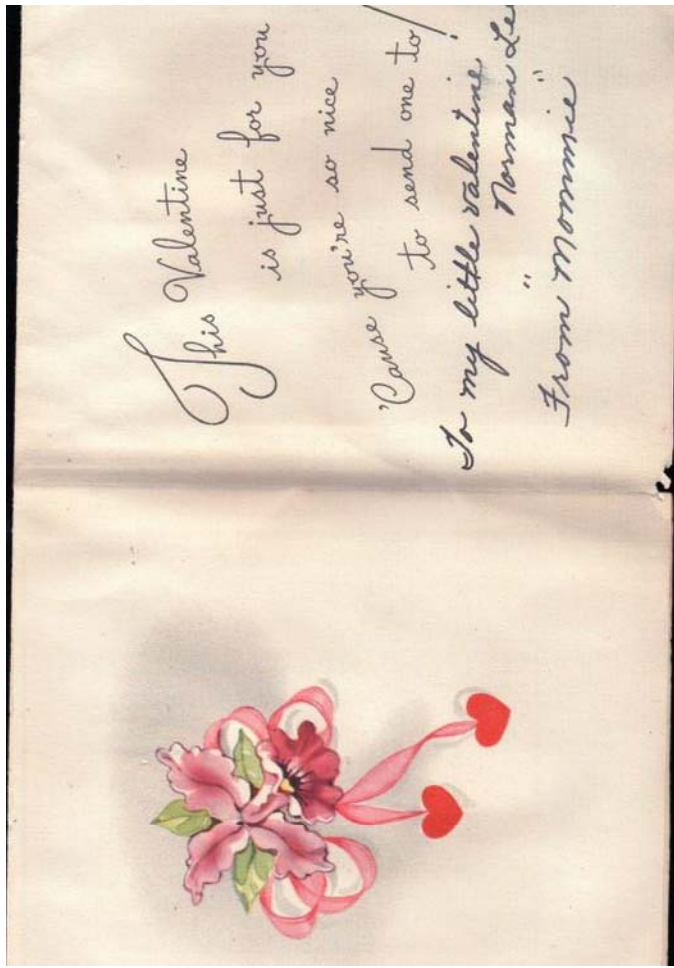 This Valentine
is just for you
'Cause you're so nice
to send one to!
To my little valentine
Norman Le
From "Mommie"